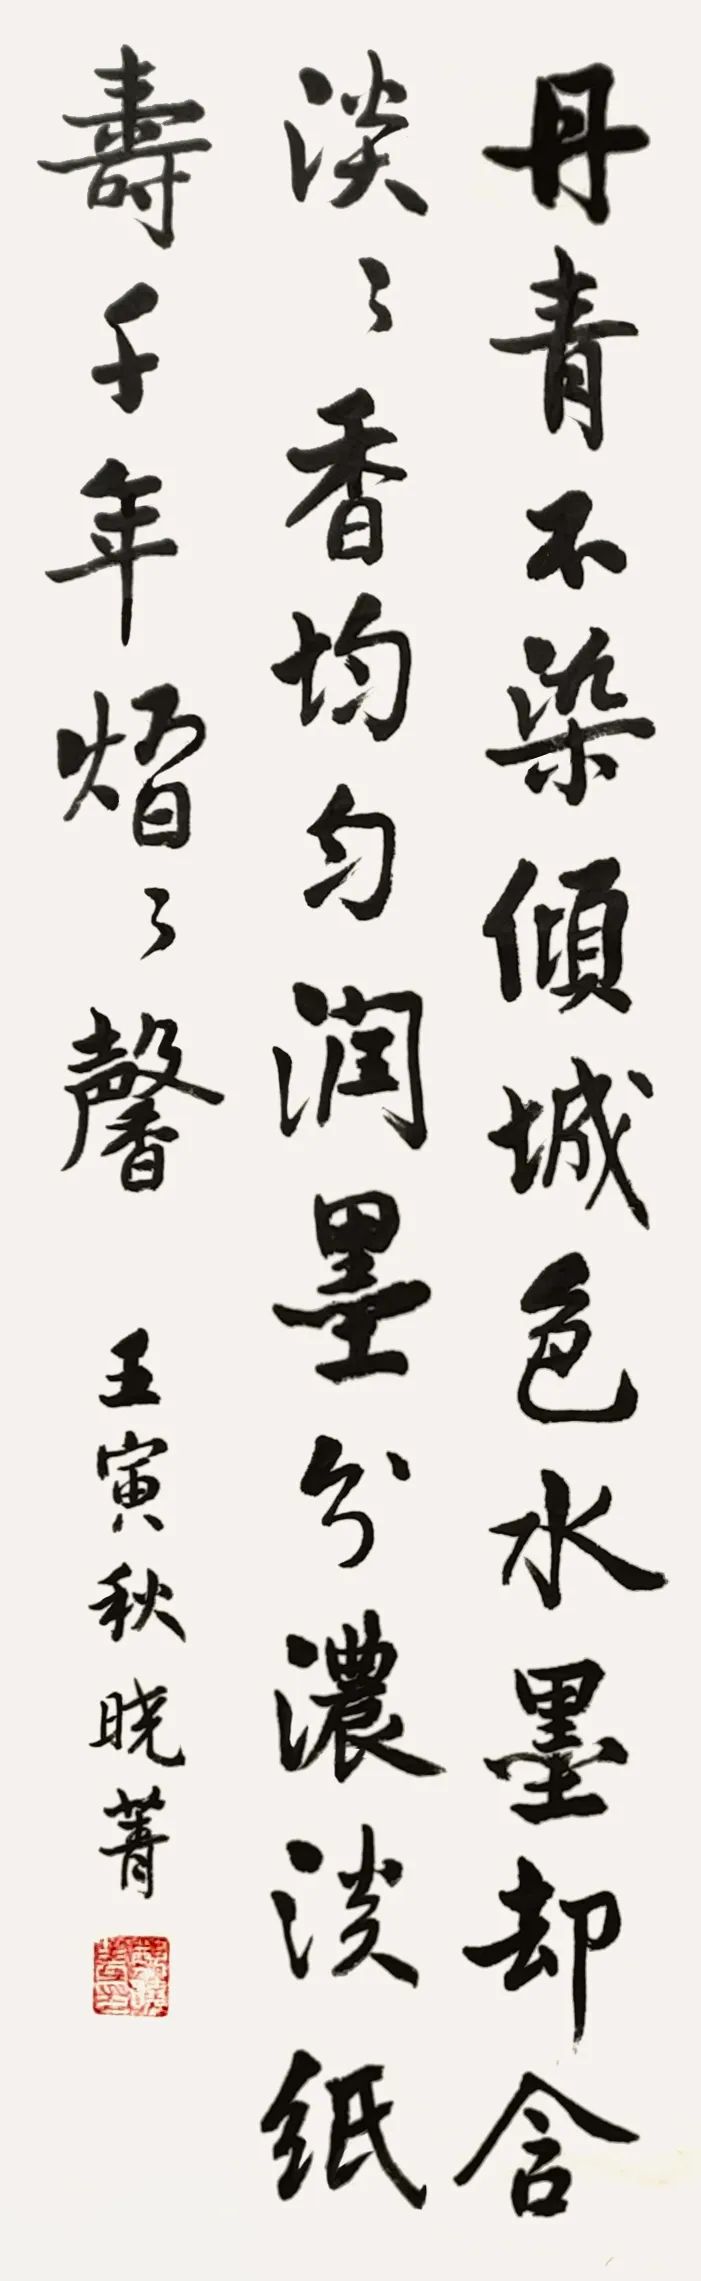 丹青不染傾城色水墨却含
淡々香均匀润墨分濃淡纸
壽千年熠々馨
壬寅秋晓菁